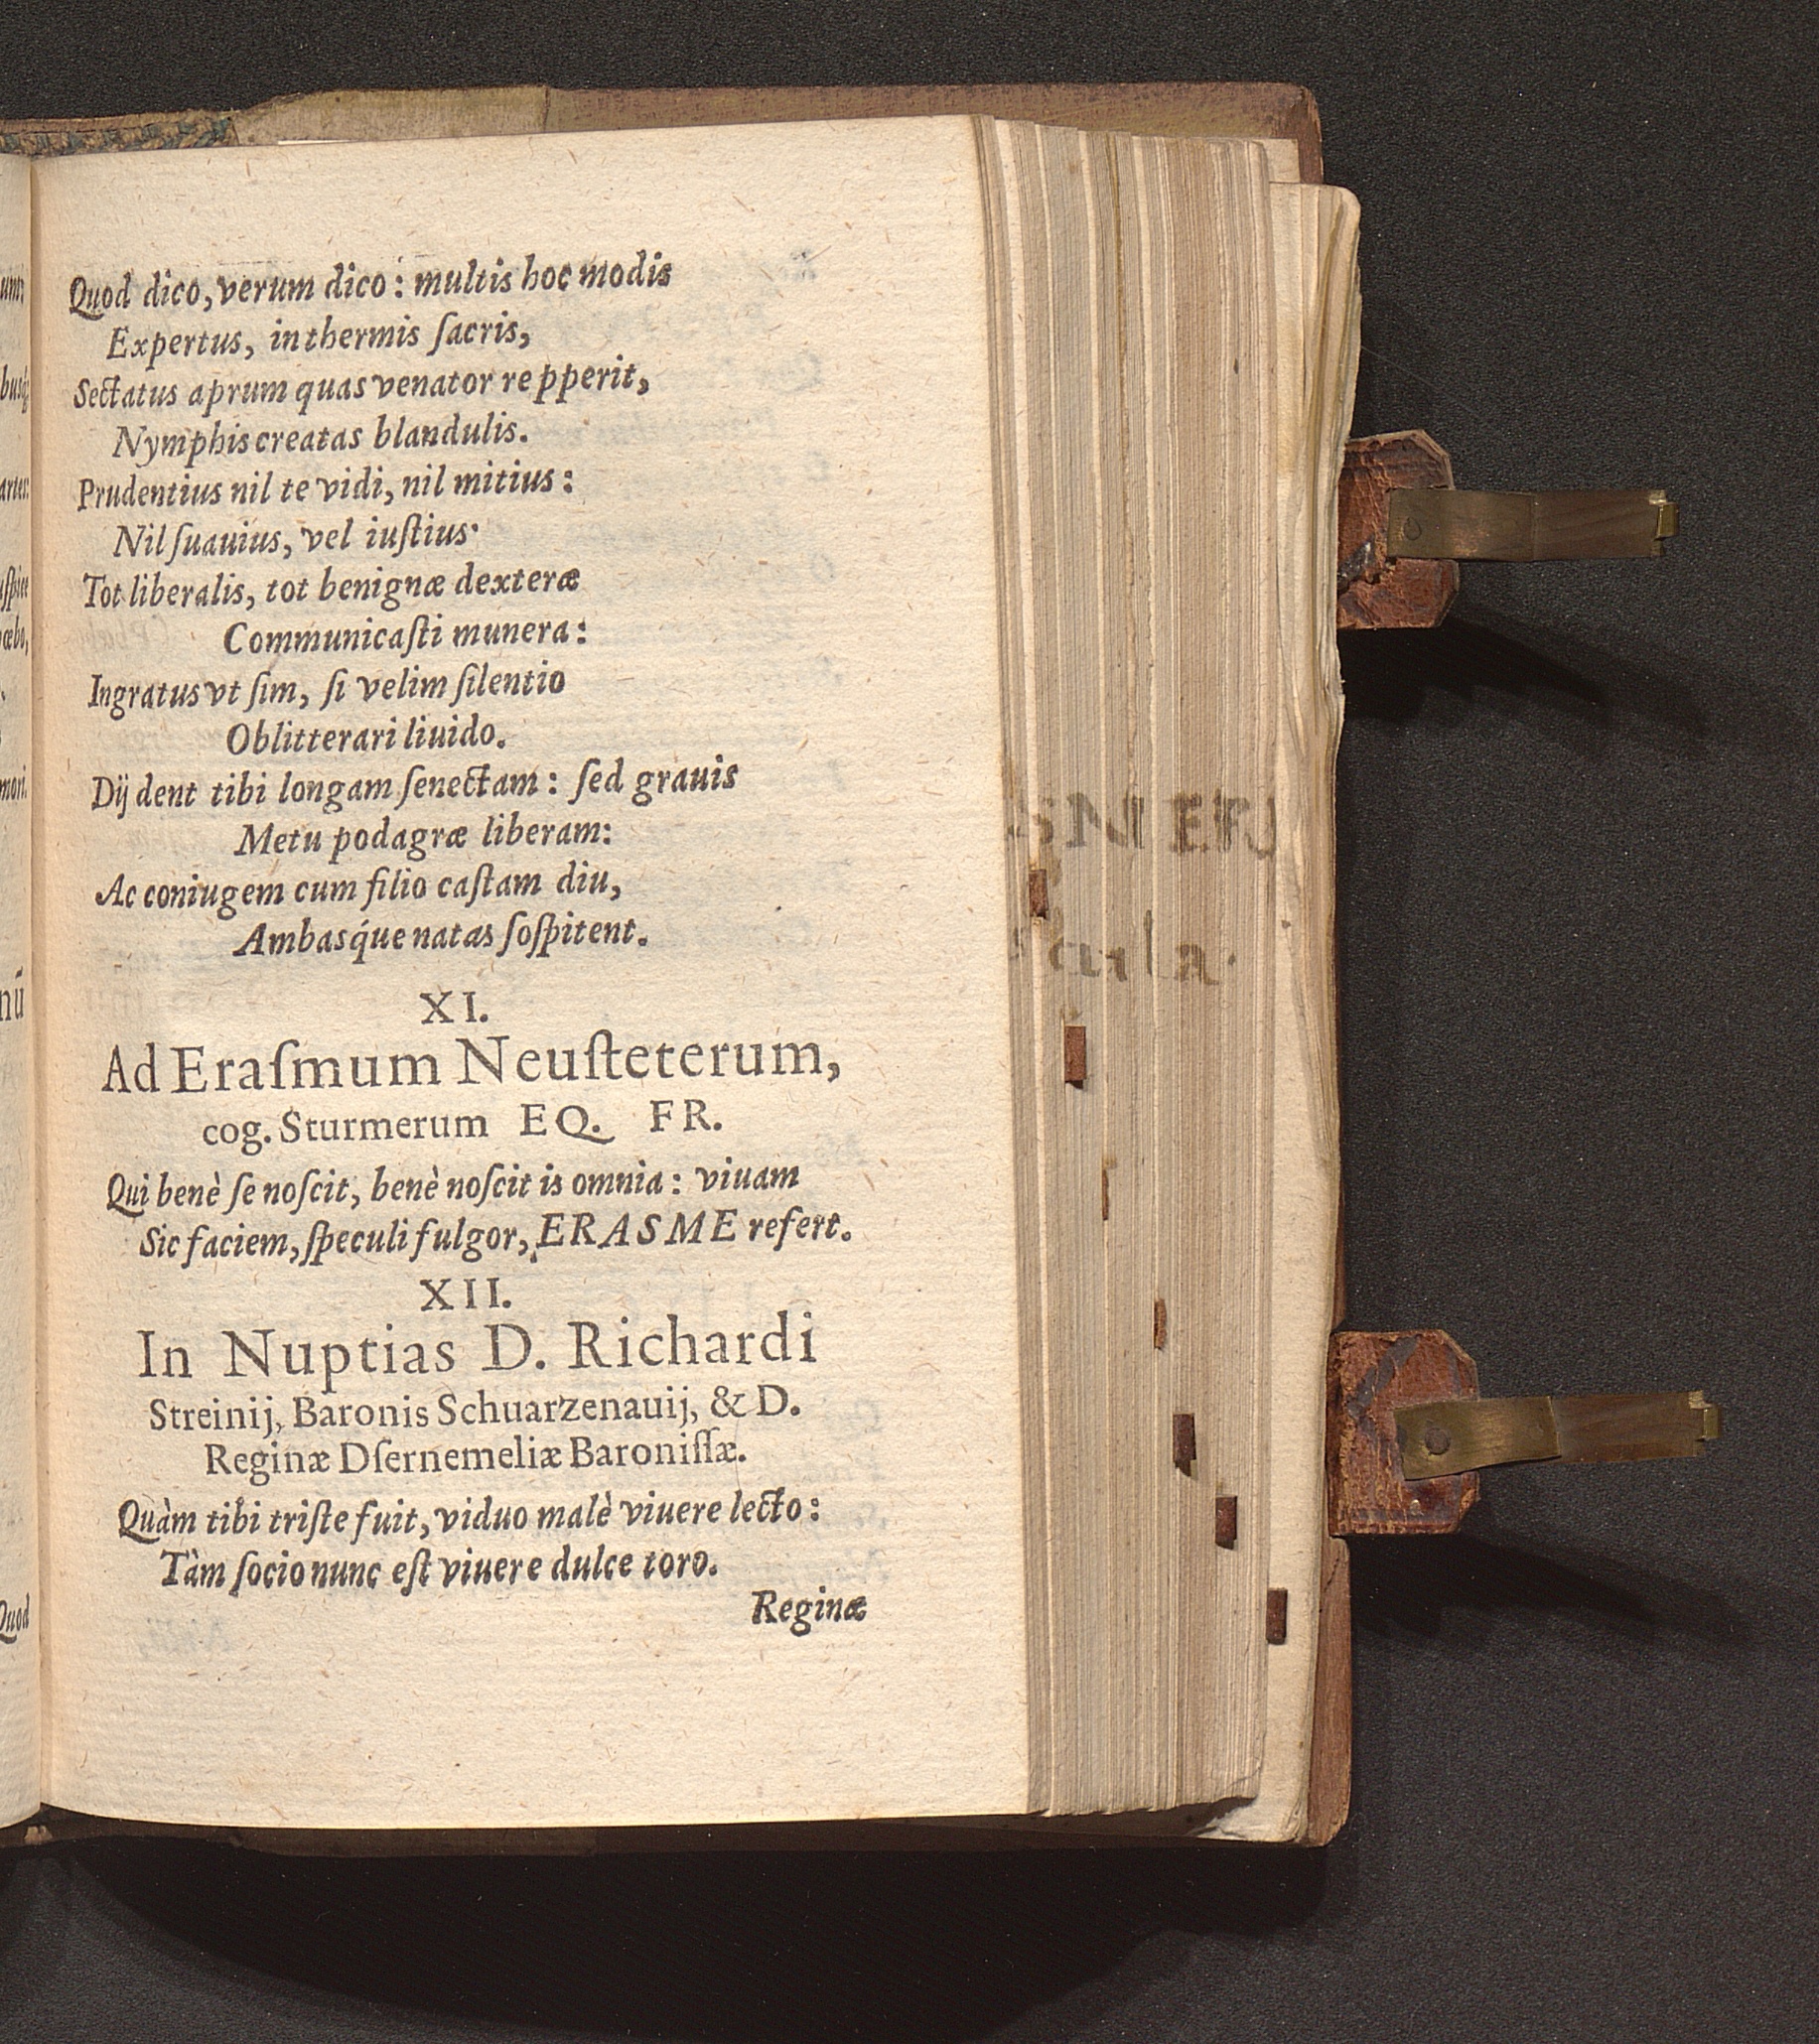 Quod dico, verum dico: multis hoc modis
Expertus, in thermis ſacris,
Sectatus aprum quas venator repperit,
Nymphis creatas blandulis.
Prudentius nil te vidi, nil mitius:
Nil ſuauius, vel iuſtius·
Tot liberalis, tot benignæ dexteræ
Communicaſti munera:
Ingratus vt ſim, ſi velim ſilentio
Oblitterari liuido.
Dij dent tibi longam ſenectam: ſed grauis
Metu podagræ liberam:
Ac coniugem cum filio caſtam diu,
Ambasq́ue natas ſoſpitent.
XI.
Ad Eraſmum Neuſteterum,
cog. Sturmerum EQ. FR.
Qui benè ſe noſcit, benè noſcit is omnia: viuam
Sic faciem, ſpeculi fulgor, ERASME refert.
XII.
In Nuptias D. Richardi
Streinij, Baronis Schuarzenauij, & D.
Reginæ Dſernemeliæ Baroniſſæ.
Quàm tibi triſte fuit, viduo malè viuere lecto:
Tàm ſocio nunc eſt viuere dulce toro.
Reginæ
Quod